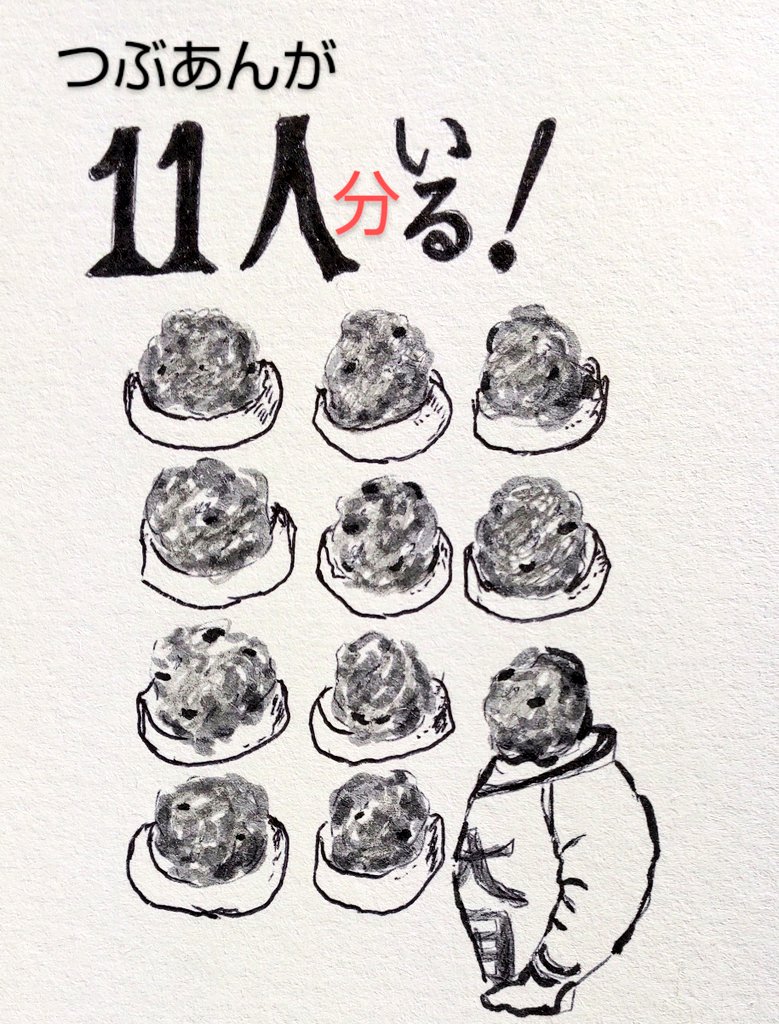 つぶあんが
11人分いる!
大